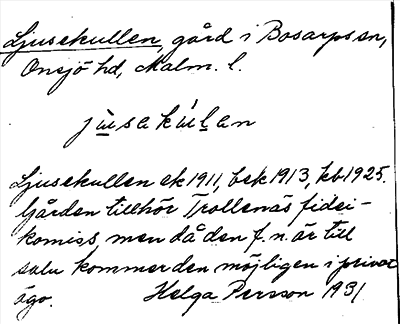 Ljusekullen, gård i Bosarps sn,
Onsjö hd, Malm. l.
jusakulan
Ljusekullen ek 1911, bek 1913, kb 1925.
Gården tillhör Trollenäs fidei-
komiss, men då den f. n. är till
salu kommer den möjligen i privat
ägo. Helga Persson 1931